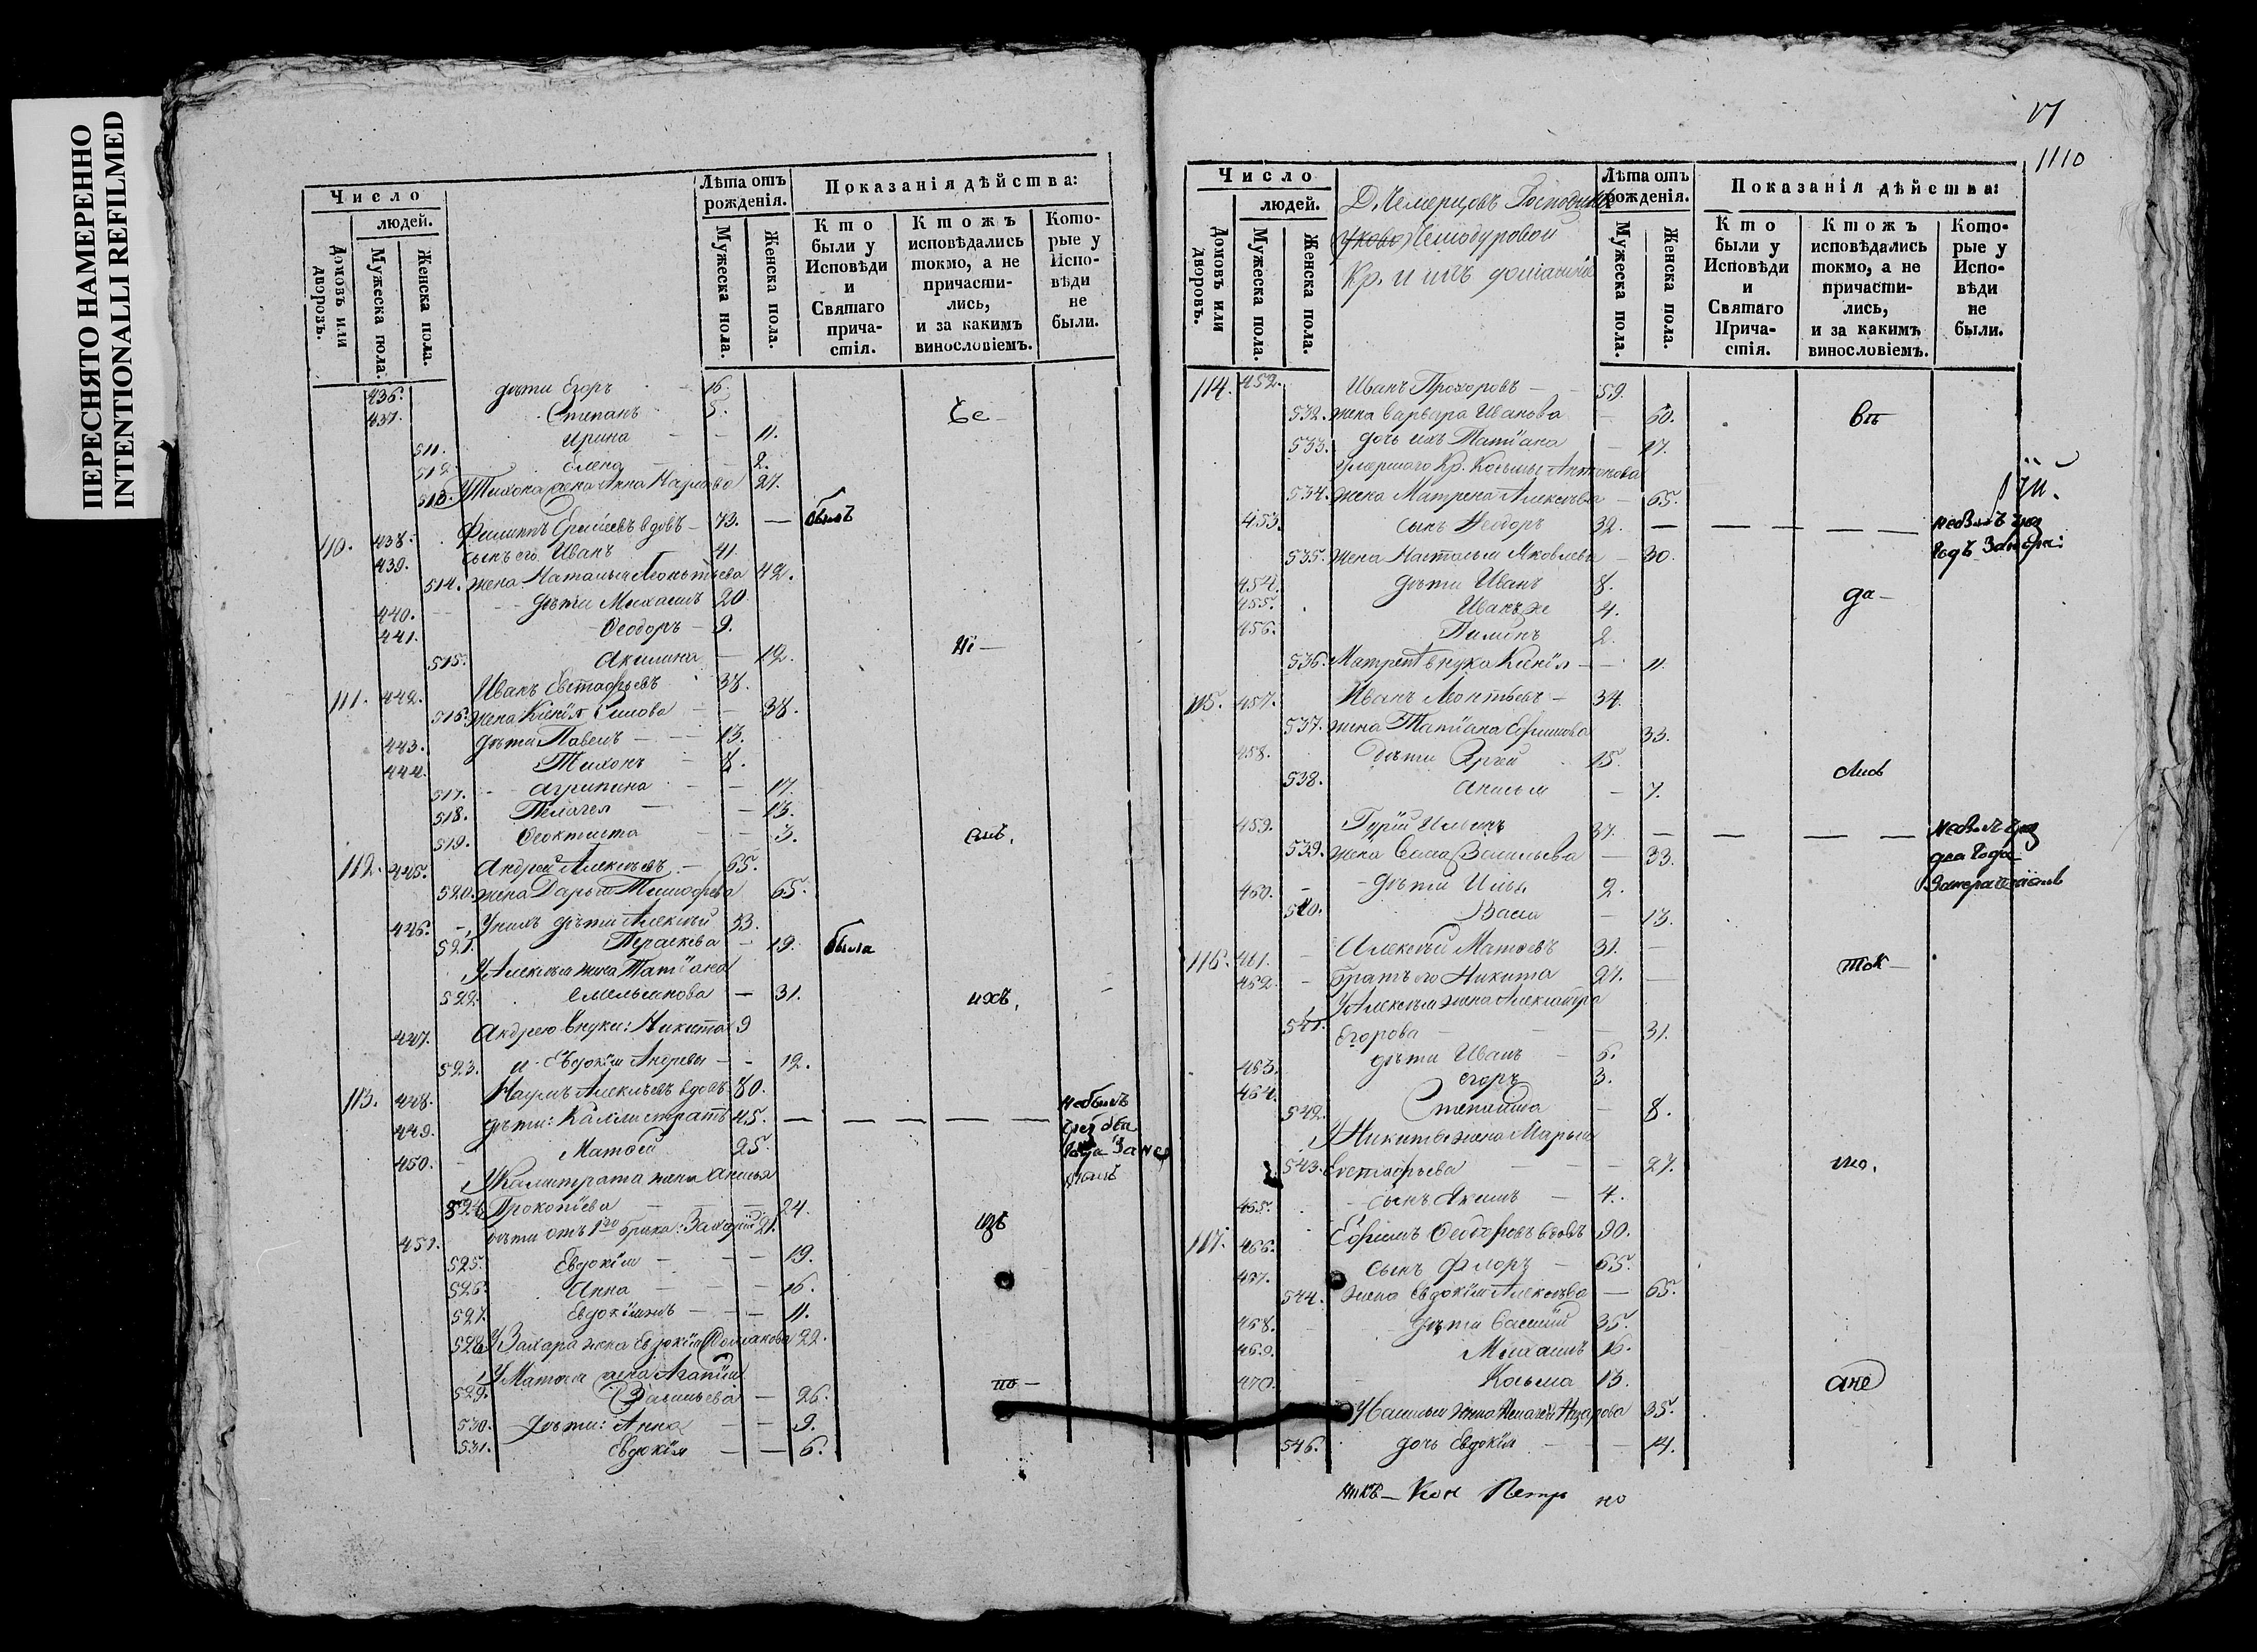 ПЕРЕСНЯТО НАМЕРЕННО
INTENTIONALLI REFILMED
Число
людей.
Домовъ или дворовъ.
Мужеска пола.
Женска пола.
Лѣта отъ рожденія.
Мужеска пола.
Женска пола.
Показанія дѣйства:
Кто были у Исповѣди и Святаго причастія.
Ктожъ исповѣдались токмо, а не причастились, и за какимъ винословіемъ.
Которые у Исповѣди не были.
436. дѣти Егоръ 16.
437. Степанъ 5.
511. Ирина 11.
512. Елена 2.
513. У Тихона жена Анна Наумова 27.
110. 438. Филиппъ Елисеевъ вдовъ 73. — былъ
439. сынъ его Иванъ 41.
514. жена Наталья Леонтьева 42.
440. дѣти Михаилъ 20.
441. Ѳеодоръ 9.
515. Акилина 12.
111. 442. Иванъ Евстафьевъ 38.
516. жена Ксенія Силова 38.
443. дѣти Павелъ 13.
444. Тихонъ 8.
517. Агрипина 17.
518. Пелагея 13.
519. Ѳеоктиста 3.
112. 445. Андрей Алексѣевъ 65.
520. жена Дарья Тимофѣева 65.
446. У нихъ дѣти Алексѣй 33.
521. Параскева 19. была
У Алексѣя жена Татіана
522. Емельянова 31. ихъ,
447. Андрею внуки: Никита 9
523. и Евдокія Андреевы 12.
113. 448. Наумъ Алексѣевъ вдовъ 80.
449. дѣти: Каллистратъ 45. — небылъ
450. Матѳей 25.
У Калистрата жена Анисья
524. Прокопіева 24.
451. дѣти отъ 1го брака: Захарій 21.
525. Евдокія 19.
526. Анна 16.
527. Евдокія жъ 11.
528. У Захара жена Евдокія 22.
У Матѳея жена Агапія
529. Васильева 26. по
530. дѣти: Анна 9.
531. Евдокія 6.
1110
Число
людей.
Домовъ или дворовъ.
Мужеска пола.
Женска пола.
Кр. и ихъ домашніе
Лѣта отъ рожденія.
Мужеска пола.
Женска пола.
Показанія дѣйства:
Кто были у Исповѣди и Святаго Причастія.
Ктожъ исповѣдались токмо, а не причастились, и за какимъ винословіемъ.
Которые у Исповѣди не были.
114. 452. Иванъ Прохоровъ 59.
532. жена Варвара Иванова 60.
533. дочь ихъ Татіана 17.
умершаго Кр. Косьмы Антонова
534. жена Матрена Алексѣева 65.
453. сынъ Ѳеодоръ 32.
535. жена Наталья Яковлева 30.
454. дѣти Иванъ 8.
455. Иванъ же 4. да
456. Пименъ 2.
536. Матрены внука Ксенія 11.
115. 457. Иванъ Леонтьевъ 34.
537. жена Татіана Ефимова 33.
458. дѣти Сергѣй 15.
538. Анисья 7.
459. Гурій Ильинъ 37.
539. жена Васса Васильева 33. два года
460. дѣти Илья 2.
540. Васса 13.
116. 461. Алексѣй Матѳеевъ 31.
462. братъ его Никита 27. ток
У Алексѣя жена Александра
541. Егорова 31.
463. дѣти Иванъ 6.
464. Егоръ 3.
542. Степанида 8.
У Никиты жена Марья
543. Евстафьева 27. мо,
465. сынъ Акимъ 4.
117. 466. Ефимъ Ѳеодоровъ вдовъ 90.
467. сынъ Флоръ 65.
544. жена Евдокія Алексѣева 65.
468. дѣти Василій 35.
469. Михаилъ 16.
470. Косьма 13. ане
У Василья жена Пелагея Назарова 35.
546. дочь Евдокія 14.